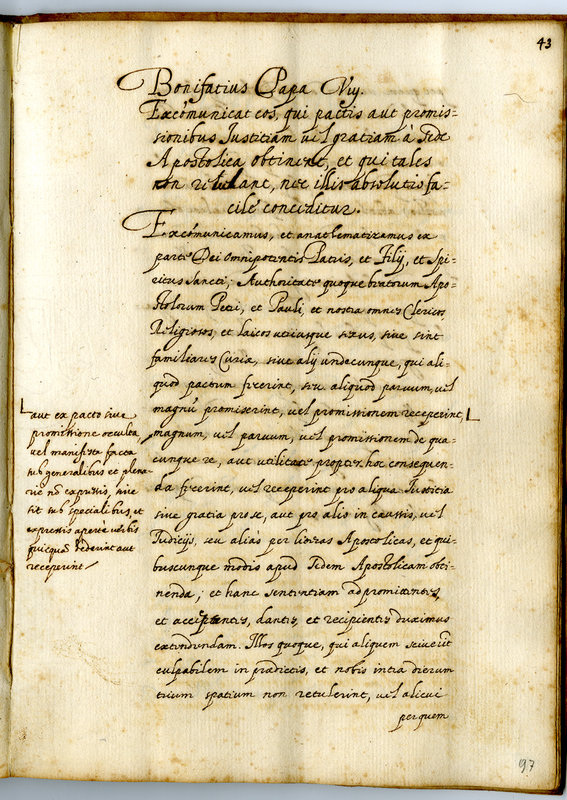 43
Bonifatius Papa Viij.
Excõmunicat eos, qui pactis aut promis=
sionibus Iustitiam uel gratiam à Sede
Apostolica obtinent, et qui tales
non reuelant, nec illis absolutis fa=
cile conceditur.
Excõmunicamus, et anathematizamus ex
parte Dei omnipotentis Patris, et Filij, et Spi=
ritus Sancti; Authoritate quoque beatorum Apo=
stolorum Petri, et Pauli, et nostra omnes Clericos,
Religiosos, et laicos utriusque sexus, siue sint
familiares Curiæ, siue alij undecunque, qui ali=
quod pactum fecerint, seu aliquod paruum, uel
magnũ promiserint, uel promissionem receperint,
magnum, uel paruum, uel promissionem de qua=
cunque re, aut utilitate propter hoc consequen=
da fecerint, uel receperint pro aliqua Iustitia
siue gratia pro se, aut pro alis in caussis, uel
Iudicijs, seu alias per literas Apostolicas, et qui=
buscunque modis apud Sedem Apostolicam obti=
nenda; et hanc sententiam ad promittentes,
et accipientes, dantes, et recipientes duximus
extendendam. Illos quoque, qui aliquem sciuerĩt
culpabilem in prædictis, et nobis intra dierum
trium spatium non retulerint, uel alicui
per quem
aut ex pacto siue
promissione occulta,
uel manifesta facta
sub generalibus et plena=
rie nõ expressis, siue
sit sub specialibus, et
expressis apertè uerbis
quicquã dederint aut
receperint
97